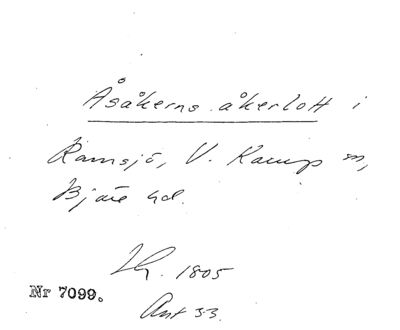 Åsåkerns åkerlott i
Ramsjö, V. Karup sn,
Bjäre hd.
Lh. 1805
Nr 7099.
Ant 33.